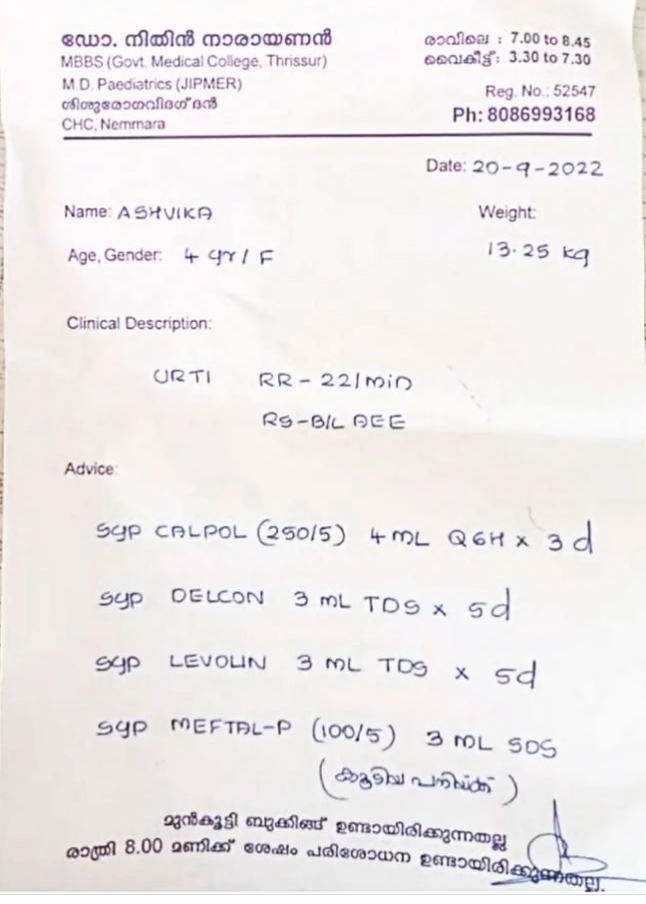 ഡോ. നിതിൻ നാരായണൻ
MBBS (Govt. Medical College, Thrissur)
M.D. Paediatrics (JIPMER)
ശിശുരോഗവിദഗ്ദൻ
CHC, Nemmara
രാവിലെ : 7.00 to 8.45
വൈകീട്ട്: 3.30 to 7.30
Reg. No.: 52547
Ph: 8086993168
Date: 20-9-2022
Name: ASHVIKA
Weight:
Age, Gender: 4 yr / F
13.25 kg
Clinical Description:
URTI RR - 22/min
RS - B/L AEE
Advice:
Syp CALPOL (250/5) 4 mL Q6H x 3 d
Syp DELCON 3 mL TDS x 5d
Syp LEVOLIN 3 mL TDS x 5d
Syp MEFTAL-P (100/5) 3 mL SOS
(കൂടിയ പനിയ്ക്ക്)
മുൻകൂട്ടി ബുക്കിങ്ങ് ഉണ്ടായിരിക്കുന്നതല്ല
രാത്രി 8.00 മണിക്ക് ശേഷം പരിശോധന ഉണ്ടായിരിക്കുന്നതല്ല.